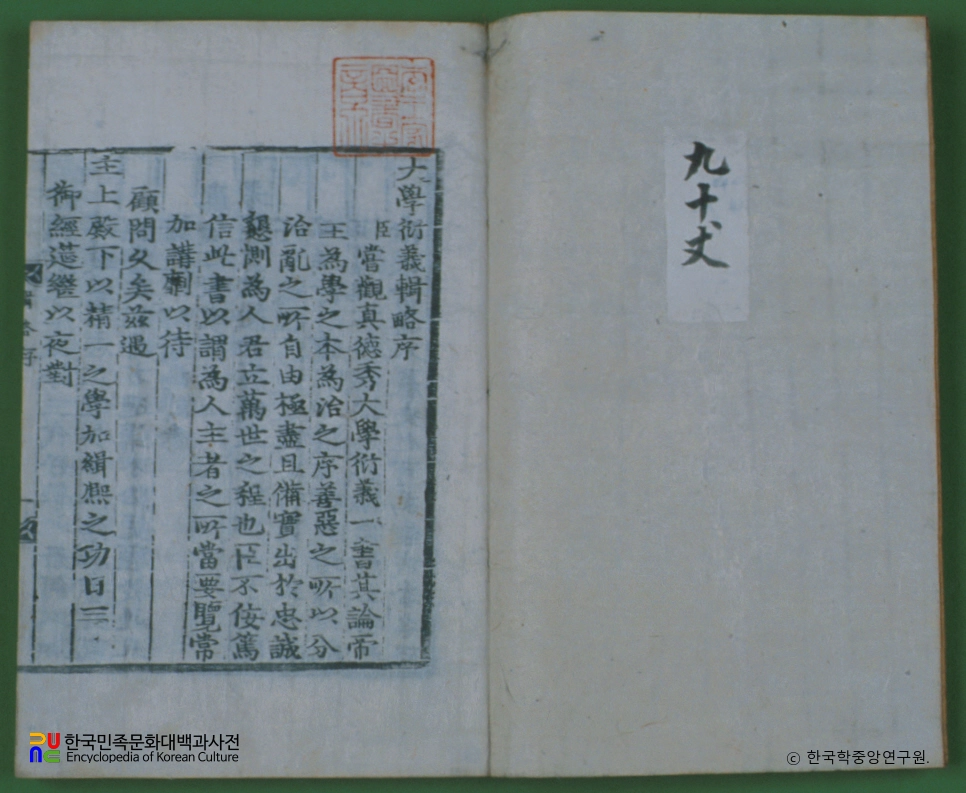 九十丈
大學衍義輯略序
臣嘗觀真德秀大學衍義一書其論帝
王為學之本為治之序善惡之所以分
治亂之所自由極盡且備實出於忠誠
懇惻為人君立萬世之程也臣不佞篤
信此書以謂為人主者之所當要覽常
加講劘以待
顧問久矣茲遇
主上殿下以精一之學加緝熙之功日三
御經筵繼以夜對
한국민족문화대백과사전
Encyclopedia of Korean Culture
© 한국학중앙연구원.